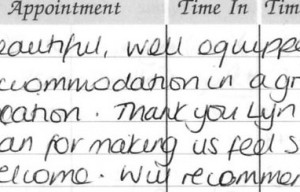 Appointment Time In Tim
eautiful, well equippe
commodation in a gr
cation. Thank you Lyn
an for making us feel s
elcome. Will recommen